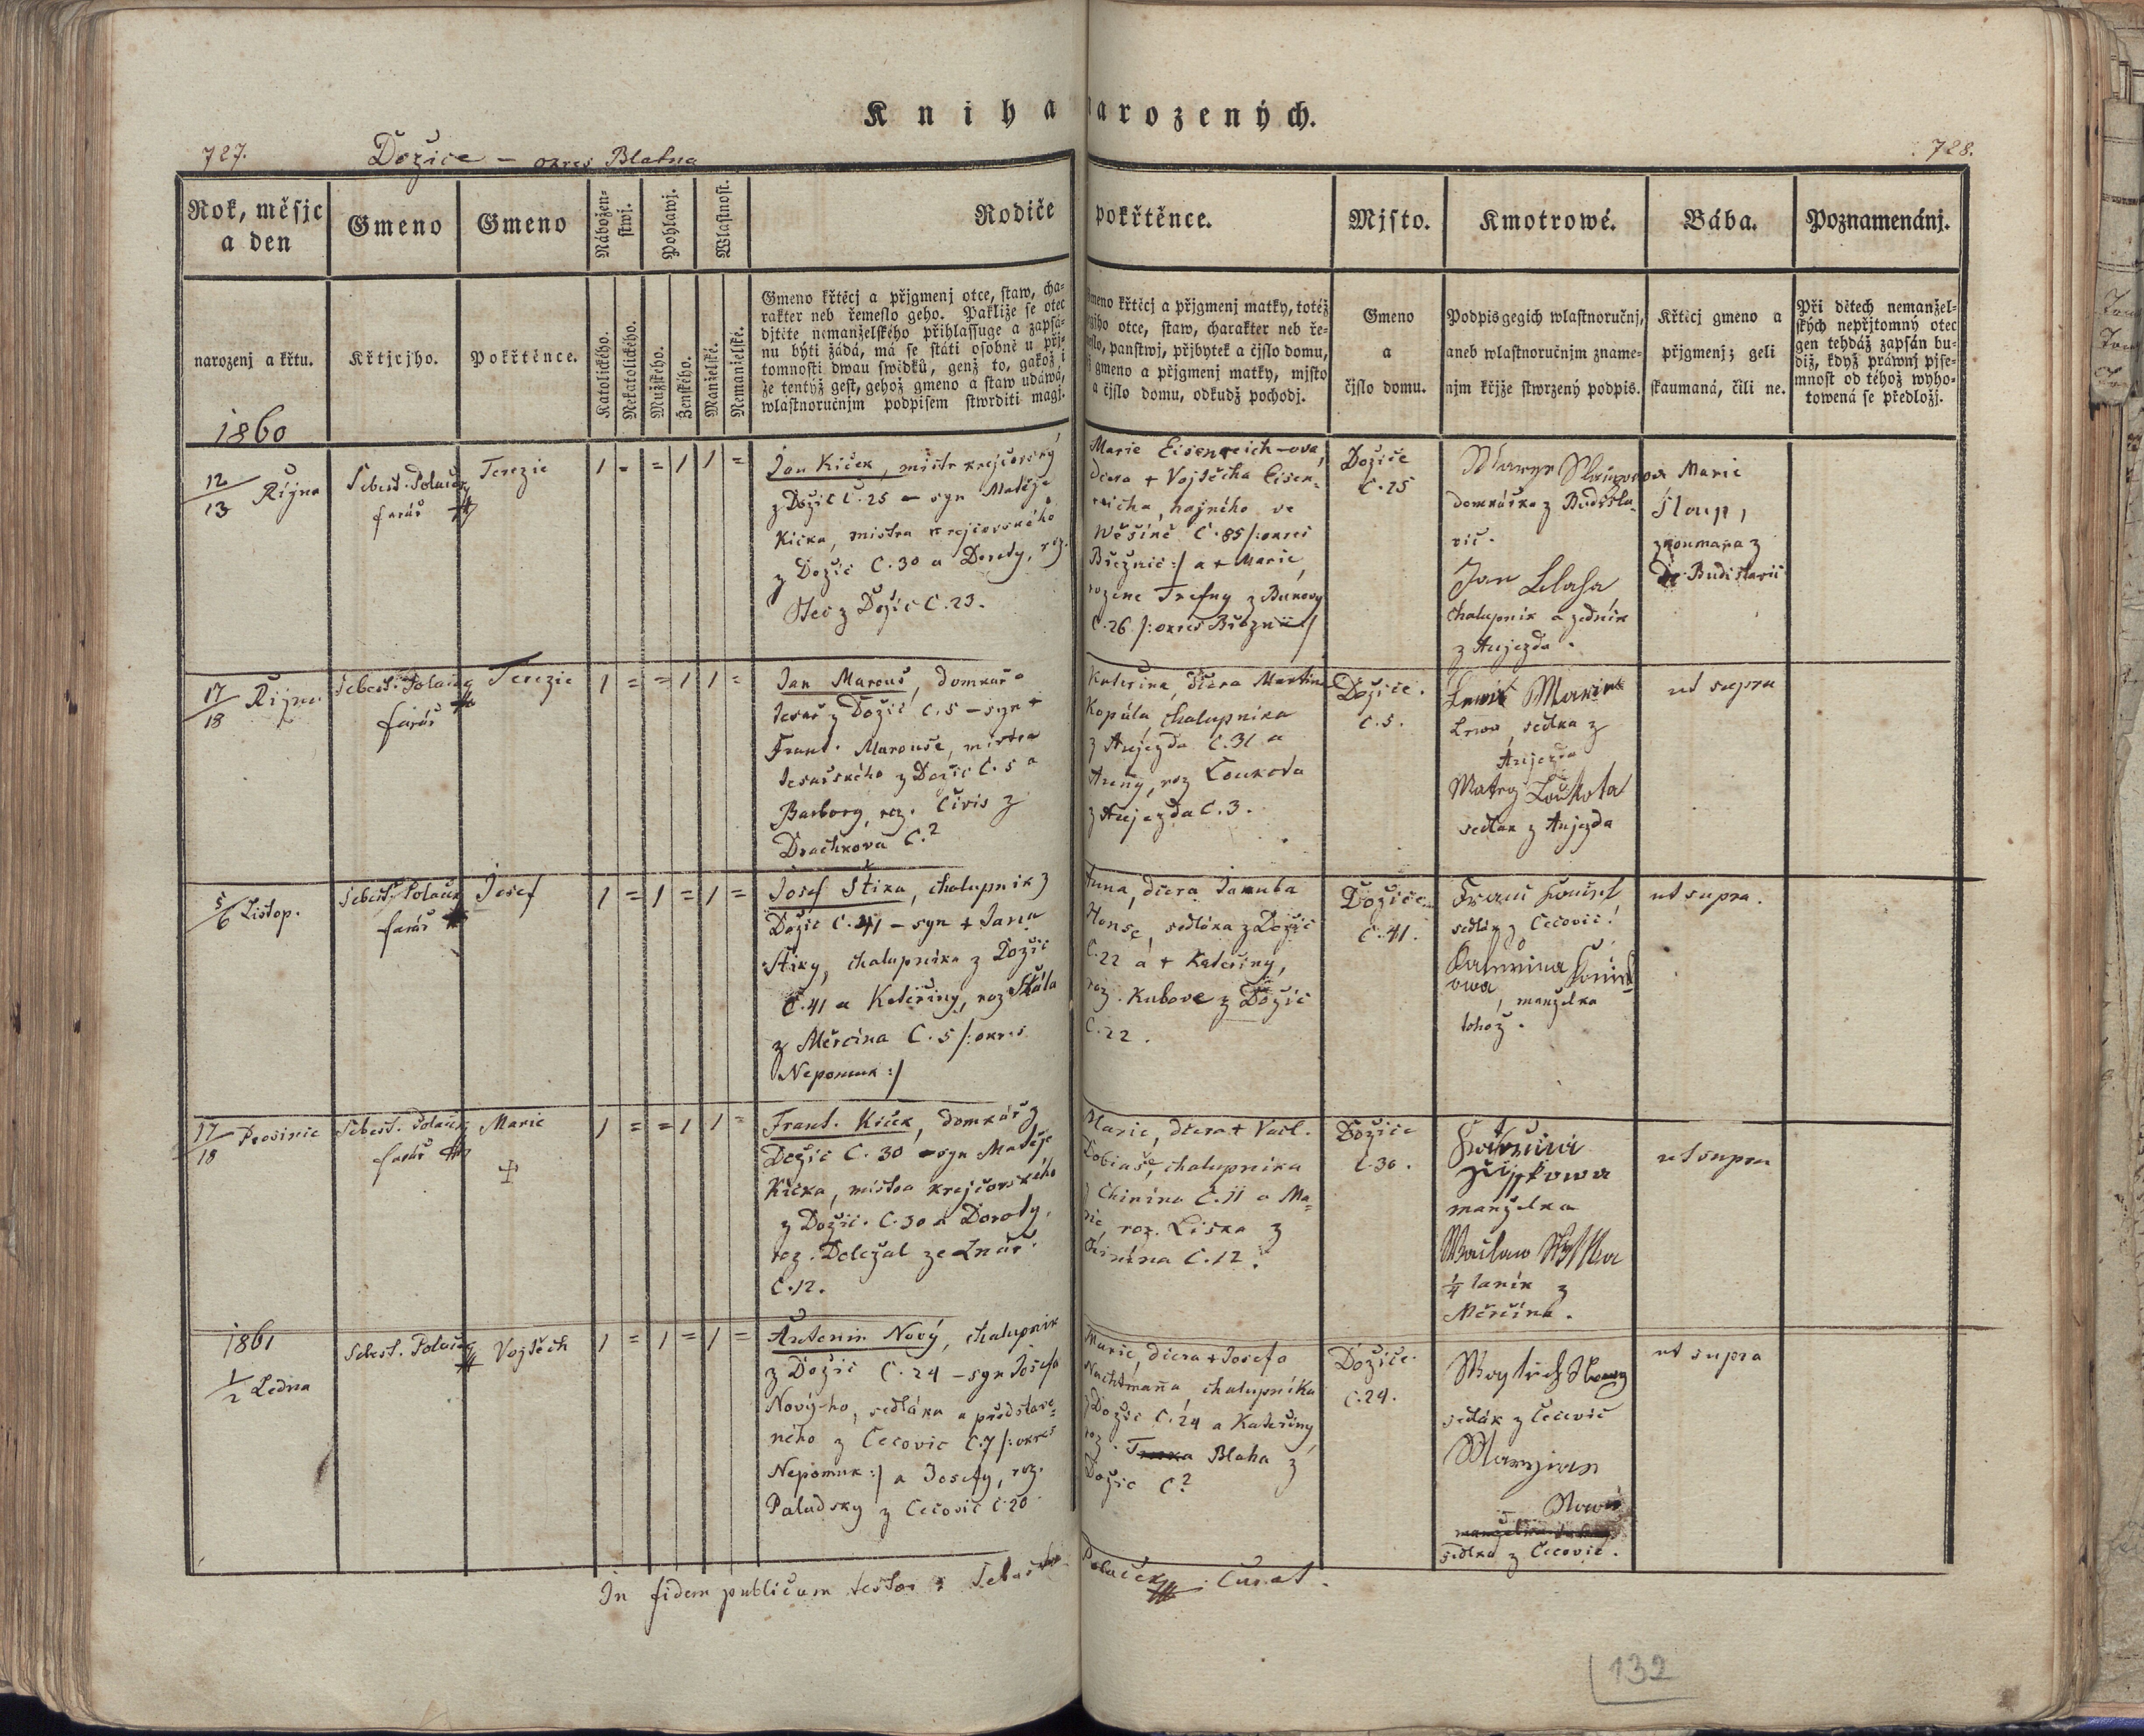 Kniha narozených.
727.
Dožice – okres Blatna
728.
Rok, měsjc
a den
Gmeno
Gmeno
Nábožen-
stwj.
Pohlawj.
Wlastnost.
Rodiče
pokřtěnce.
Mjsto.
Kmotrowé.
Bába.
Poznamenánj.
narozenj a křtu.
Křtjcjho.
Pokřtěnce.
Katolického.
Nekatolického.
Mužského.
Ženského.
Manželské.
Nemanželské.
Gmeno křtěcj a přjgmenj otce, staw, cha-
rakter neb řemeslo geho. Pakliže se otec
djtěte nemanželského přihlassuge a zapsá-
nu býti žádá, má se státi osobně u přj-
tomnosti dwau swědků, genž to, gakož i
že tentýž gest, gehož gmeno a staw udáwá,
wlastnoručnjm podpisem stwrditi magj.
Gmeno křtěcj a přjgmenj matky, totéž
gegjho otce, staw, charakter neb ře-
meslo, panstwj, přjbytek a čjslo domu,
gmeno a přjgmenj matky, mjsto
a čjslo domu, odkudž pocházj.
Gmeno
a
čjslo domu.
Podpis gegich wlastnoručnj,
aneb wlastnoručnjm zname-
njm křjže stwrzený podpis.
Křtěcj gmeno a
přjgmenj; geli
skaumaná, čili ne.
Při dětech nemanžel-
ských nepřjtomný otec
gen tehdáž zapsán bu-
diž, když práwnj pjse-
mnost od téhož wyho-
towená se předložj.
1860
12/13 Řijna
Sebest. Polaček
farář
Terezie
1 = = 1 1 =
Jan Kiček, mistr krejčovský
z Dožic Č. 25 – syn Matěje
Kička, mistra krejčovského
z Dožic Č. 30 a Doroty, roz.
z Dožic Č. 23.
Marie Eisenreich-ova,
dcera + Vojtěcha Eisen-
reicha, hajného ve
Wěšíně Č. 85 /: okres
Březnic :/ a + Marie,
rozene Trefny z Bukovy
Č. 26 /: okres Březnic /
Dožice
Č. 25
domkářka z Budisla-
vic.
Jan
chalupník a zedník
z Aujezda.
Marie
Sloup,
zkoumaná z
Budislavic
17/18 Řijna
Sebest. Polaček
farář
Terezie
1 = = 1 1 =
Jan Marouš, domkář a
tesař z Dožic Č. 5 – syn +
Frant. Marouše, mistra
tesařského z Dožic Č. 5 a
Barbory, roz. Čivis z
Drachkova Č.?
Kateřina, dcera Martina
Kopála, chalupníka
z Aujezda Č. 31 a
Anny, roz. Loukota
z Aujezda Č. 3.
Dožice.
Č. 5.
Marie
sedlka z
Aujezda
Matey Loukota
sedlák z Aujezda
ut supra
5/6 Listop.
Sebest. Polaček
farář
Josef
1 = 1 = 1 =
Josef Štika, chalupnik z
Dožic Č. 41 – syn + Jana
Štiky, chalupníka z Dožic
Č. 41 a Kateřiny, roz. Skála
z Měrčína Č. 5 /: okres
Nepomuk :/
Anna, dcera Jakuba
Honse, sedláka z Dožic
Č. 22 a + Kateřiny,
roz. Kubove z Dožic
Č. 22.
Dožice
Č. 41.
sedlák z Čečovic.
manželka
tohož.
ut supra.
17/18 Prosinic
Sebest. Polaček
farář
Marie
+
1 = = 1 1 =
Frant. Kiček, domkář z
Dožic Č. 30 – syn Matěje
Kička, mistra krejčovského
z Dožic. Č. 30 a Doroty,
roz. Doležal ze Lnář
Č. 12.
Marie, dcera + Vacl.
Tobiaše, chalupníka
z Chinína Č. 11 a Ma-
rie roz. Liska z
Chinína Č. 12.
Dožice
Č. 30.
manželka
¼ laník z
Měrčína.
ut supra
1861
1/2 Ledna
Sebest. Polaček
Vojtěch
1 = 1 = 1 =
Antonin Nový, chalupník
z Dožic Č. 24 – syn Josefa
Nový-ho, sedláka a představe-
ného z Čečovic Č. 7 /: okres
Nepomuk :/ a Josefy, roz.
Paladsky z Čečovic Č. 20
Marie, dcera + Josefa
Nachtmanna chalupníka
z Dožic Č. 24 a Kateřiny
roz. Blaha z
Dožic Č?
Dožice.
Č. 24.
sedlák z Čečovic
sedlka z Čečovic.
ut supra
In fidem publicam testor : Sebast. Polaček Curat.
132